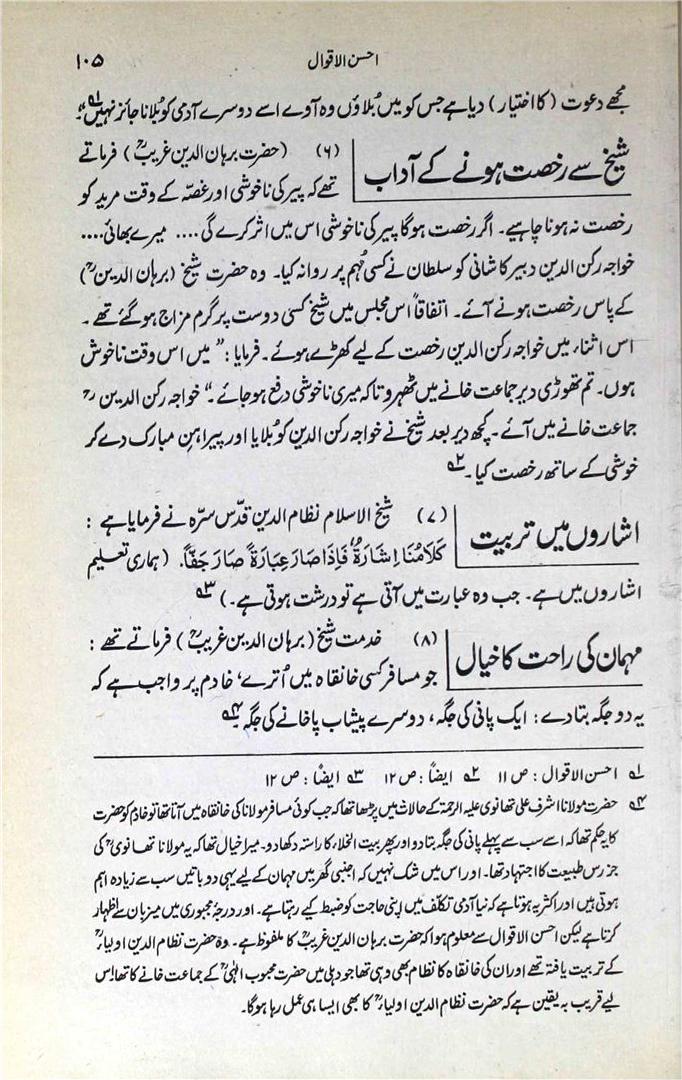 احسن الاقوال
۱۰۵
مجھے دعوت (کا اختیار) دیا ہے جس کو میں بُلاؤں وہ آوے اسے دوسرے آدمی کو بُلانا جائز نہیں"۱؎
شیخ سے رخصت ہونے کے آداب
(۶) (حضرت برہان الدین غریبؒ) فرماتے
تھے کہ پیر کی ناخوشی اور غصّہ کے وقت مرید کو
رخصت نہ ہونا چاہیے۔ اگر رخصت ہوگا پیر کی ناخوشی اس میں اثر کرے گی .... میرے بھائی ....
خواجہ رکن الدین دبیر کاشانی کو سلطان نے کسی مُہم پر روانہ کیا۔ وہ حضرت شیخ (برہان الدینؒ)
کے پاس رخصت ہونے آئے۔ اتفاقاً اس مجلس میں شیخ کسی دوست پر گرم مزاج ہو گئے تھے۔
اس اثناء میں خواجہ رکن الدین رخصت کے لیے کھڑے ہوئے۔ فرمایا: "میں اس وقت ناخوش
ہوں۔ تم تھوڑی دیر جماعت خانے میں ٹھہرو تاکہ میری ناخوشی دفع ہو جائے۔" خواجہ رکن الدینؒ
جماعت خانے میں آئے۔ کچھ دیر بعد شیخ نے خواجہ رکن الدین کو بُلایا اور پیراہنِ مبارک دے کر
خوشی کے ساتھ رخصت کیا۔۲؎
اشاروں میں تربیت
(۷) شیخ الاسلام نظام الدین قدّس سرّہ نے فرمایا ہے:
کَلَامُنَا اِشَارَۃٌ فَاِذَا صَارَ عِبَارَۃً صَارَ جَفَّا۔ (ہماری تعلیم
اشاروں میں ہے۔ جب وہ عبارت میں آتی ہے تو درشت ہوتی ہے۔)۳؎
مہمان کی راحت کا خیال
(۸) خدمت شیخ (برہان الدین غریبؒ) فرماتے تھے:
جو مسافر کسی خانقاہ میں اُترے، خادم پر واجب ہے کہ
یہ دو جگہ بتا دے: ایک پانی کی جگہ، دوسرے پیشاب پاخانے کی جگہ۔۴؎
۱؎ احسن الاقوال: ص ۱۱ ۲؎ ایضاً: ص ۱۲ ۳؎ ایضاً: ص ۱۲
۴؎ حضرت مولانا اشرف علی تھانوی علیہ الرحمۃ کے حالات میں پڑھا تھا کہ جب کوئی مسافر مولانا کی خانقاہ میں آتا تھا تو خادم کو حضرت
کا یہ حکم تھا کہ اسے سب سے پہلے پانی کی جگہ بتا دو اور پھر بیت الخلاء کا راستہ دکھا دو۔ میرا خیال تھا کہ یہ مولانا تھانویؒ کی
جز رس طبیعت کا اجتہاد تھا۔ اور اس میں شک نہیں کہ اجنبی گھر میں مہمان کے لیے یہی دو باتیں سب سے زیادہ اہم
ہوتی ہیں اور اکثر یہ ہوتا ہے کہ نیا آدمی تکلّف میں اپنی حاجت کو ضبط کیے رہتا ہے۔ اور درجۂ مجبوری میں میزبان سے اظہار
کرتا ہے لیکن احسن الاقوال سے معلوم ہوا کہ حضرت برہان الدین غریبؒ کا ملفوظ ہے۔ وہ حضرت نظام الدین اولیاءؒ
کے تربیت یافتہ تھے اور ان کی خانقاہ کا نظام بھی وہی تھا جو دہلی میں حضرت محبوب الٰہیؒ کے جماعت خانے کا تھا! اس
لیے قریب بہ یقین ہے کہ حضرت نظام الدین اولیاءؒ کا بھی ایسا ہی عمل رہا ہوگا۔